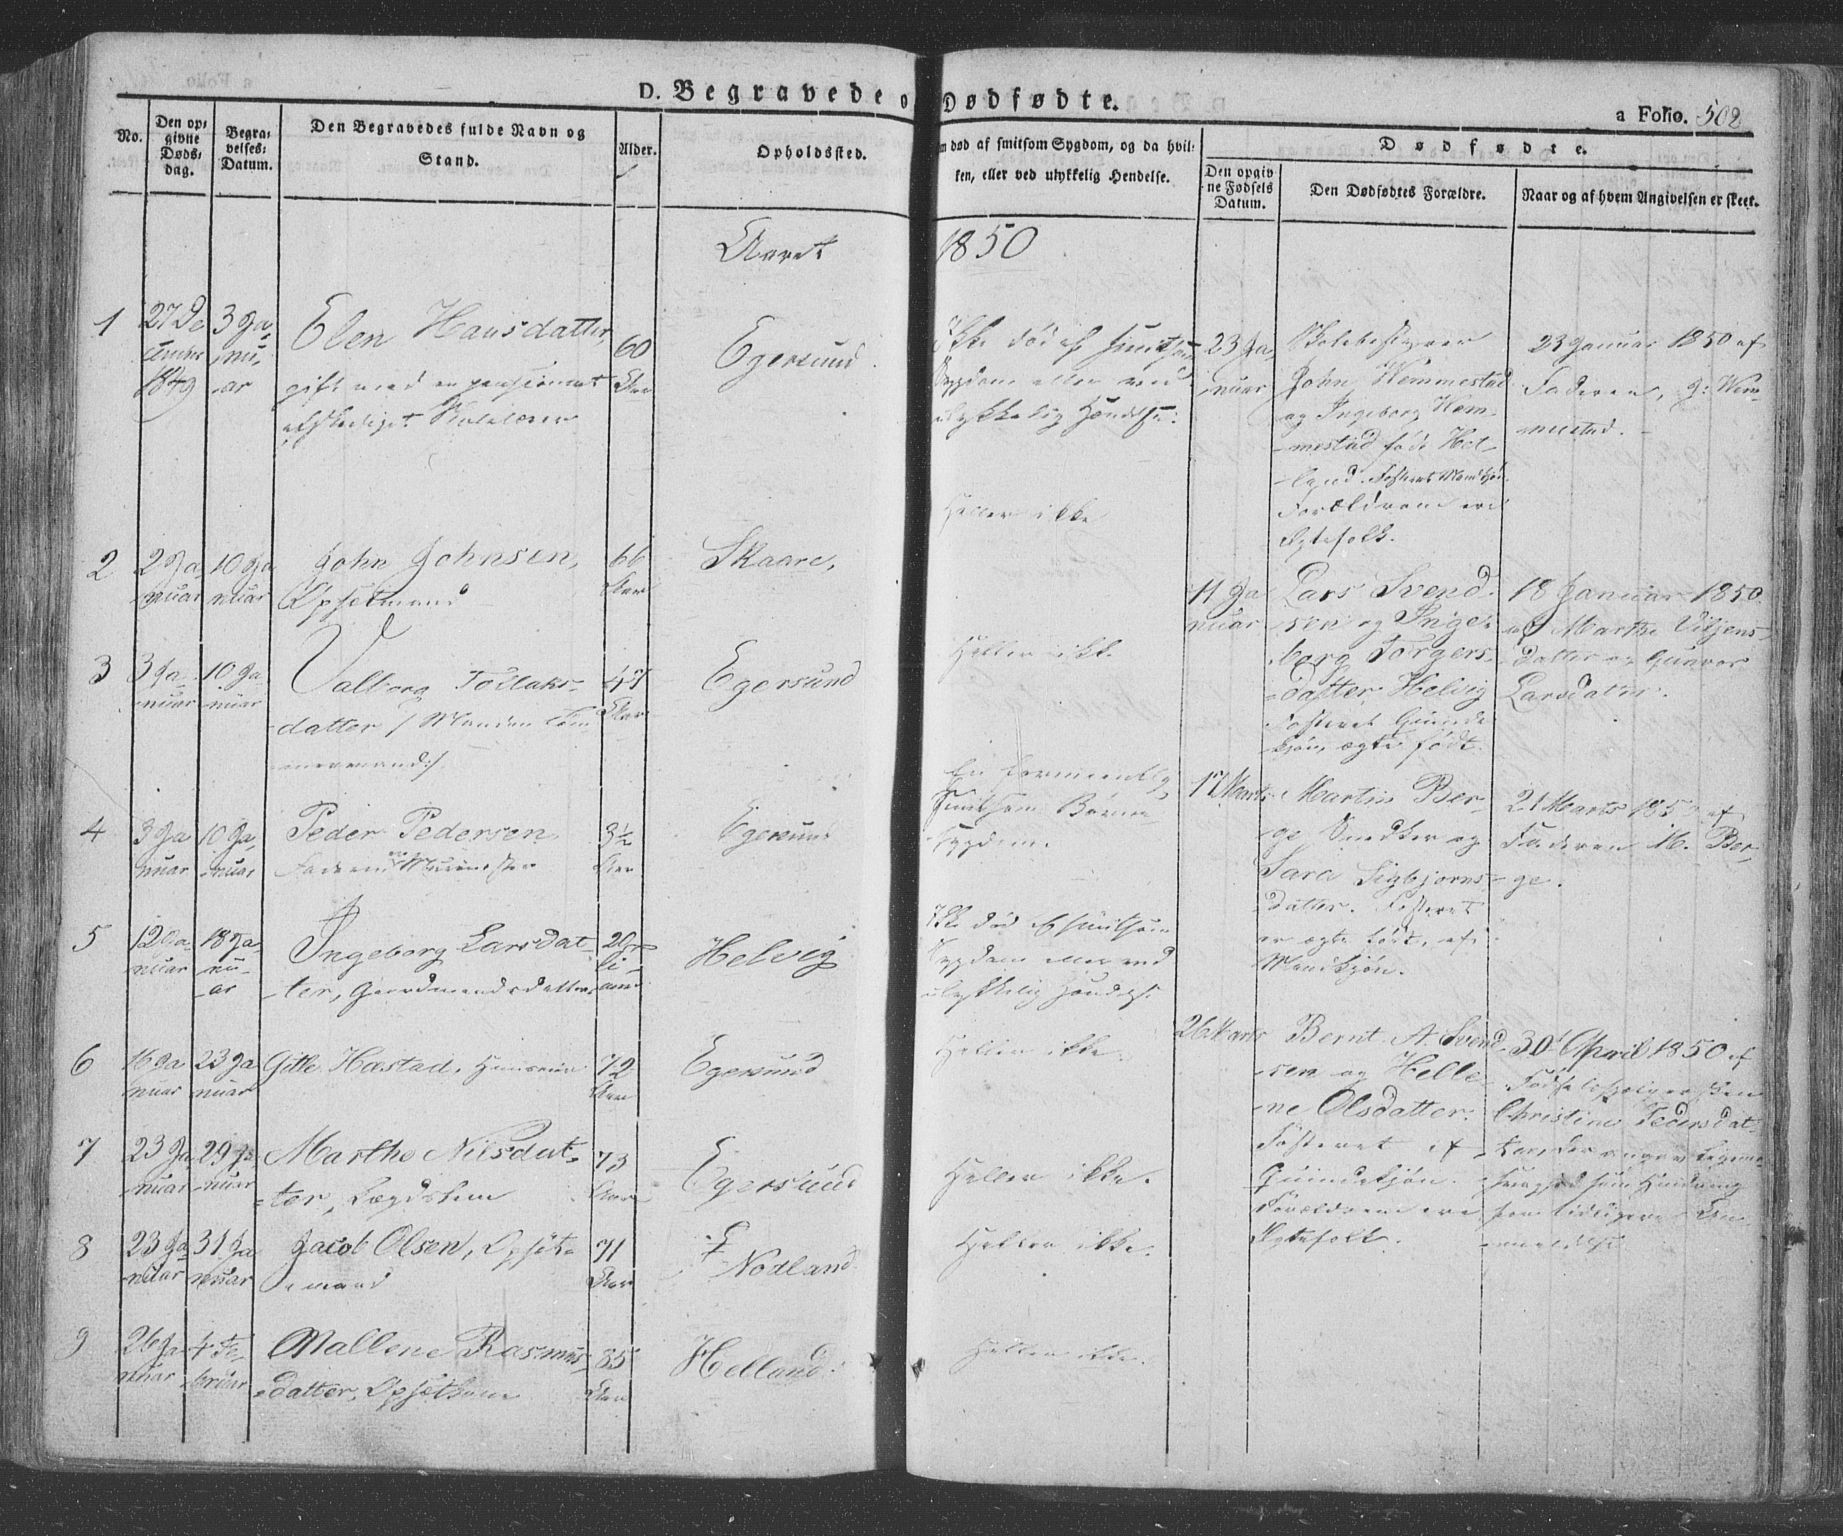 D. Begravede o
Dødfødte.
a Folio. 502
No.
Den op-
givne
Døds-
dag.
Begra-
velses-
Datum.
Den Begravedes fulde Navn og
Stand.
Alder.
Opholdssted.
m død af smitsom Sygdom, og da hvil-
ken, eller ved ulykkelig Hendelse.
Dødfødte.
Den opgiv
ne Fødsels
Datum.
Den Dødfødtes Forældre.
Naar og af hvem Angivelsen er skeet.
Aaret
1850
1
27 De
cember
1849
3 Ja-
nu-
ar
Elen Hansdatter,
gift med en pensioneret
afskediget Skolelærer
60
Aar
Egersund.
Ikke død af smitsom
Sygdom eller ved
ulykkelig Hændelse.
23 Ja-
nuar
Skolebestyrer
John Hemmestad
og Ingeborg Hem-
mestad født Hel-
land. Fosteret Mandkjøn
Forældrene ere
Ægtefolk.
23 Januar 1850 af
Faderen, J. Hem-
mestad.
2
2 Ja-
nuar
10 Ja
nuar
John Johnsen,
Opsetmand
66
Aar
Skaare,
Heller ikke
11 Ja
nuar
Lars Svend-
sen og Inge-
borg Torgers-
datter Helvig
Fosteret Qvinde
kjøn, ægte født.
18 Januar 1850
af Marthe
datter og Gunvor
Larsdatter.
3
3 Ja-
nuar
10 Ja-
nuar
Valborg Tollaks-
datter /: Manden Tøm-
mermand :/
47
Aar
Egersund
Heller ikke
4
3 Ja
nuar
10 Ja-
nuar
Peder Pedersen
Faderen Muurmester
3½
Aar
Egersund
En formeentlig
smitsom Børne-
sygdom.
17 Marts
Martin Ber-
ge Snedker og
Sara Sigbjørns-
datter. Fosteret
er ægte født, af
Mandkjøn.
21 Marts 185 af
Faderen M. Ber-
ge.
5
12 Ja-
nuar
18 Ja-
nu-
ar
Ingeborg Larsdat-
ter, Gaardmandsdatter
Helvig
Ikke død af smitsom
Sygdom eller ved
ulykkelig Hændelse.
6
16 Ja
nuar
23 Ja
nuar
Gitle Hæstad,
72
Aar
Egersund
Heller ikke.
26 Marts
Bernt A. Svend-
sen og Helle-
ne Olsdatter.
Fosteret af
Qvindekjøn.
Forældrene ere
Ægtefolk.
30 April 1850 af
Christine Pedersdat-
ter, der angav
som Hindring
for tidligere An-
meldelse
7
23 Ja
nuar
29 Ja
nuar
Marthe Nilsdat-
ter, Lægdslem
73
Aar
Egersund
Heller ikke.
8
23 Ja
nuar
31 Ja
nuar
Jacob Olsen, Opsæt-
mand
71
Aar
Nodland
Heller ikke.
9
26 Ja
nuar
4 Fe-
bruar
Mallene Rasmus-
datter, Opsætkone
85
Aar
Helland.
Heller ikke.